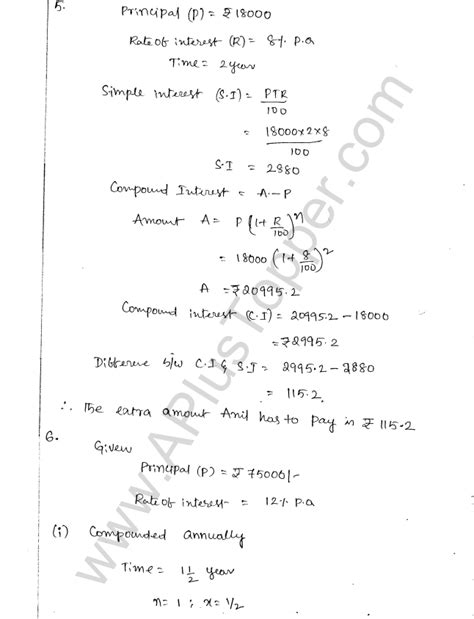 5. Principal (P) = ₹ 18000
Rate of interest (R) = 8% p.a
Time = 2 year
Simple interest (S.I) = PTR/100
= 18000×2×8/100
S.I = 2880
Compound Interest = A - P
Amount A = P(1+R/100)^n
= 18000(1+8/100)^2
A = ₹20995.2
Compound interest (C.I) = 20995.2 - 18000
= ₹2995.2
Difference b/w C.I & S.I = 2995.2 - 2880
= 115.2
∴ The extra amount Anil has to pay in ₹ 115.2
6. Given
Principal (P) = ₹ 75000/-
Rate of interest = 12% p.a
(i) Compounded Annually
Time = 1 1/2 year
n = 1 ; x = 1/2
www.APlusTopper.com